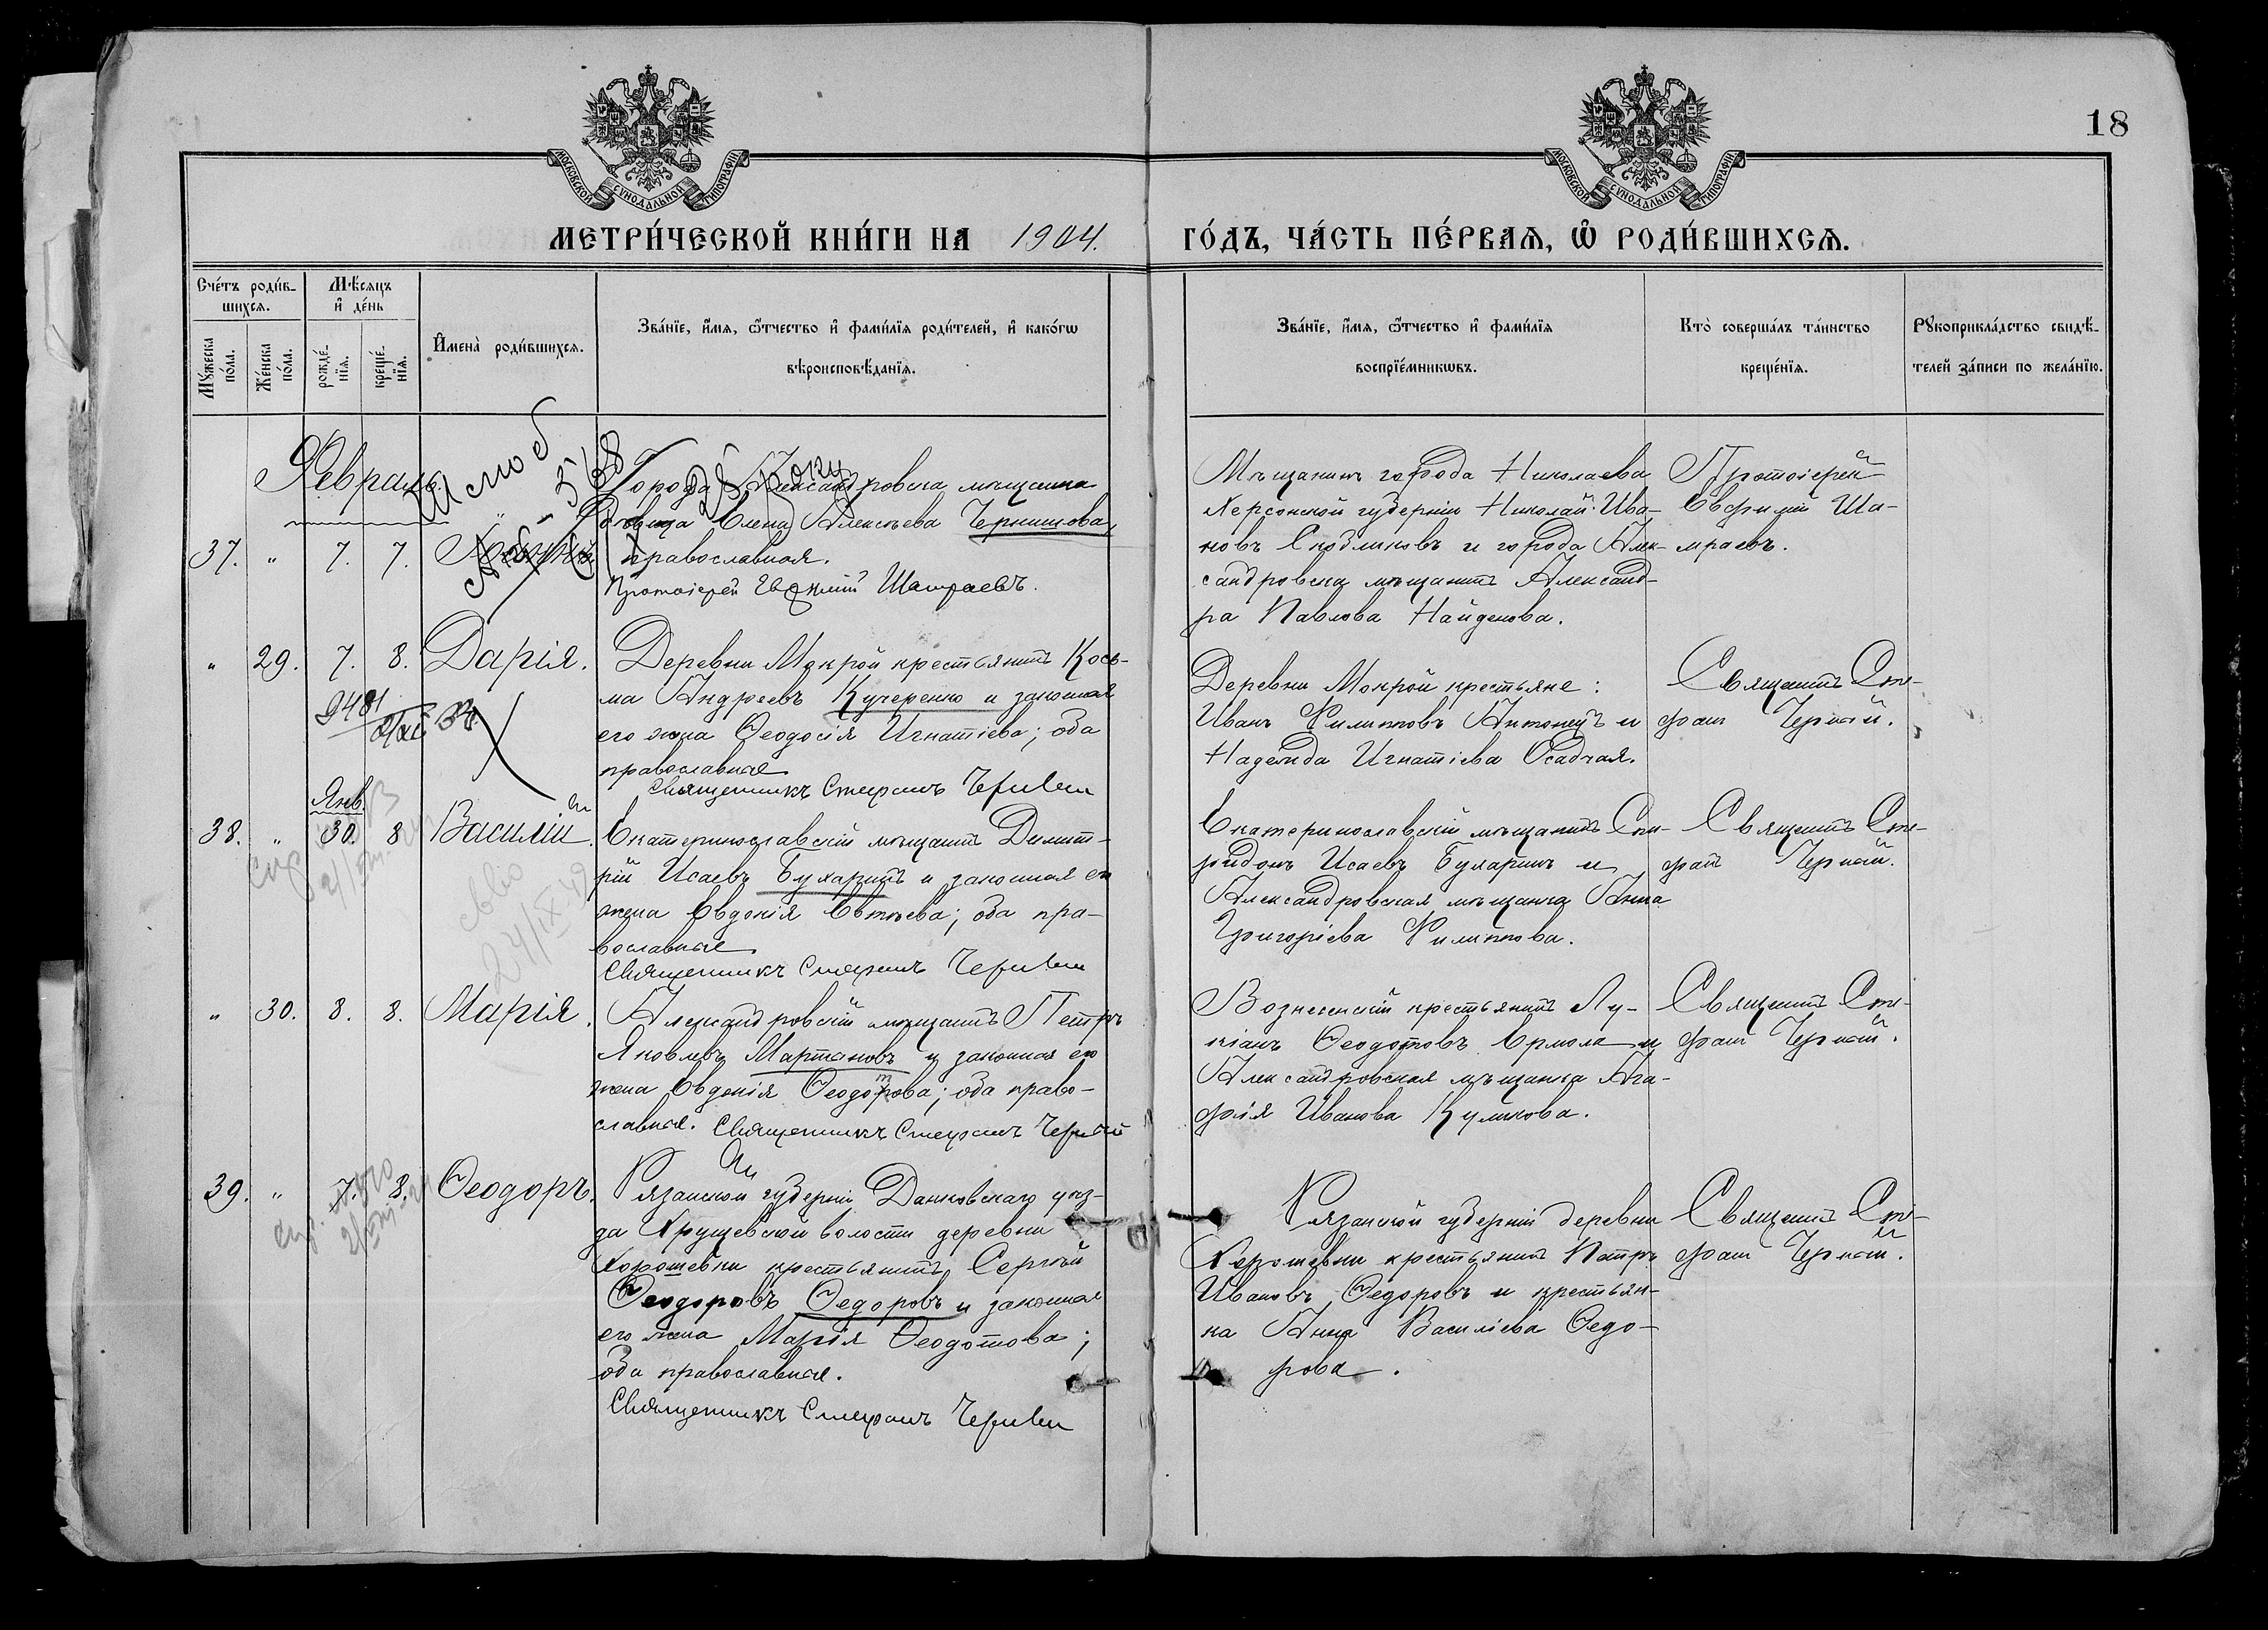 18
МОСКОВСКОЙ СѴНОДАЛЬНОЙ ТИПОГРАФІИ
МОСКОВСКОЙ СѴНОДАЛЬНОЙ ТИПОГРАФІИ
МЕТРИ́ЧЕСКОЙ КНИ́ГИ НА 1904. ГО́ДЪ, ЧА́СТЬ ПЕ́РВАѦ, Ѽ РОДИ́ВШИХСѦ.
Сче́тъ роди́в-
шихсѧ.
Мѣ́сѧцъ
и҆ де́нь
Мꙋ́жеска
по́ла.
Же́нска
по́ла.
рожде́-
нїѧ.
креще́-
нїѧ.
И҆мена̀ роди́вшихсѧ.
Зва́нїе, и҆́мѧ, ѻ҆́тчество и҆ фами́лїѧ роди́телей, и҆ како́гѡ
вѣроисповѣ́данїѧ.
Зва́нїе, и҆́мѧ, ѻ҆́тчество и҆ фами́лїѧ
воспрїе́мникѡвъ.
Кто̀ соверша́лъ та́инство
креще́нїѧ.
Рꙋкоприкла́дство свидѣ́-
телей за́писи по жела́нїю.
Февраль.
37. " 7. 7.
Города Александровска мѣщанка
вдовица Елена Алексѣева Чернышова,
православная.
Протоіерей Евфимій Шамраевъ.
Мѣщанинъ города Николаева
Херсонской губерніи Николай Ива-
новъ и города Алек-
сандровска мѣщанка Александ-
ра Павлова Найденова.
Протоіерей
Евфимій Ша-
мраевъ.
" 29. 7. 8. Дарія.
Деревни Мокрой крестьянинъ Кось-
ма Андреевъ Кучеренко и законная
его жена Ѳеодосія Игнатіева; оба
православные
Священникъ Стефанъ Черный
Деревни Мокрой крестьяне:
Иванъ Филипповъ Антонецъ и
Надежда Игнатіева Осадчая.
Священникъ Сте-
фанъ Черный.
Янв.
38. " 30. 8 Василій.
Екатеринославскій мѣщанинъ Димит-
рій Исаевъ Бухаринъ и законная его
жена Евдокія Евтѣева; оба пра-
вославные
Священникъ Стефанъ Черный
Екатеринославскій мѣщанинъ Спи-
ридонъ Исаевъ Бухаринъ и
Александровская мѣщанка Анна
Григоріева Филиппова.
Священникъ Сте-
фанъ Черный.
24/IX-49
" 30. 8. 8. Марія.
Александровскій мѣщанинъ Петръ
Яковлевъ Мартановъ и законная его
жена Евдокія Ѳеодотова; оба право-
славные. Священникъ Стефанъ Черный
Вознесенскій крестьянинъ Лу-
кіанъ Ѳеодотовъ Ермола и
Александровская мѣщанка Ага-
фія Иванова Куликова.
Священникъ Сте-
фанъ Черный.
39. " 7. 8. Ѳеодоръ.
Рязанской губерніи Данковскаго уѣз-
да Хрущевской волости деревни
Хорошевки крестьянинъ Сергѣй
Ѳеодоровъ Ѳедоровъ и законная
его жена Марія Ѳеодотова;
оба православные.
Священникъ Стефанъ Черный
Рязанской губерніи деревни
Хорошевки крестьянинъ Петръ
Ивановъ Ѳедоровъ и крестьян-
ка Анна Василіева Ѳедо-
рова.
Священникъ Сте-
фанъ Черный.